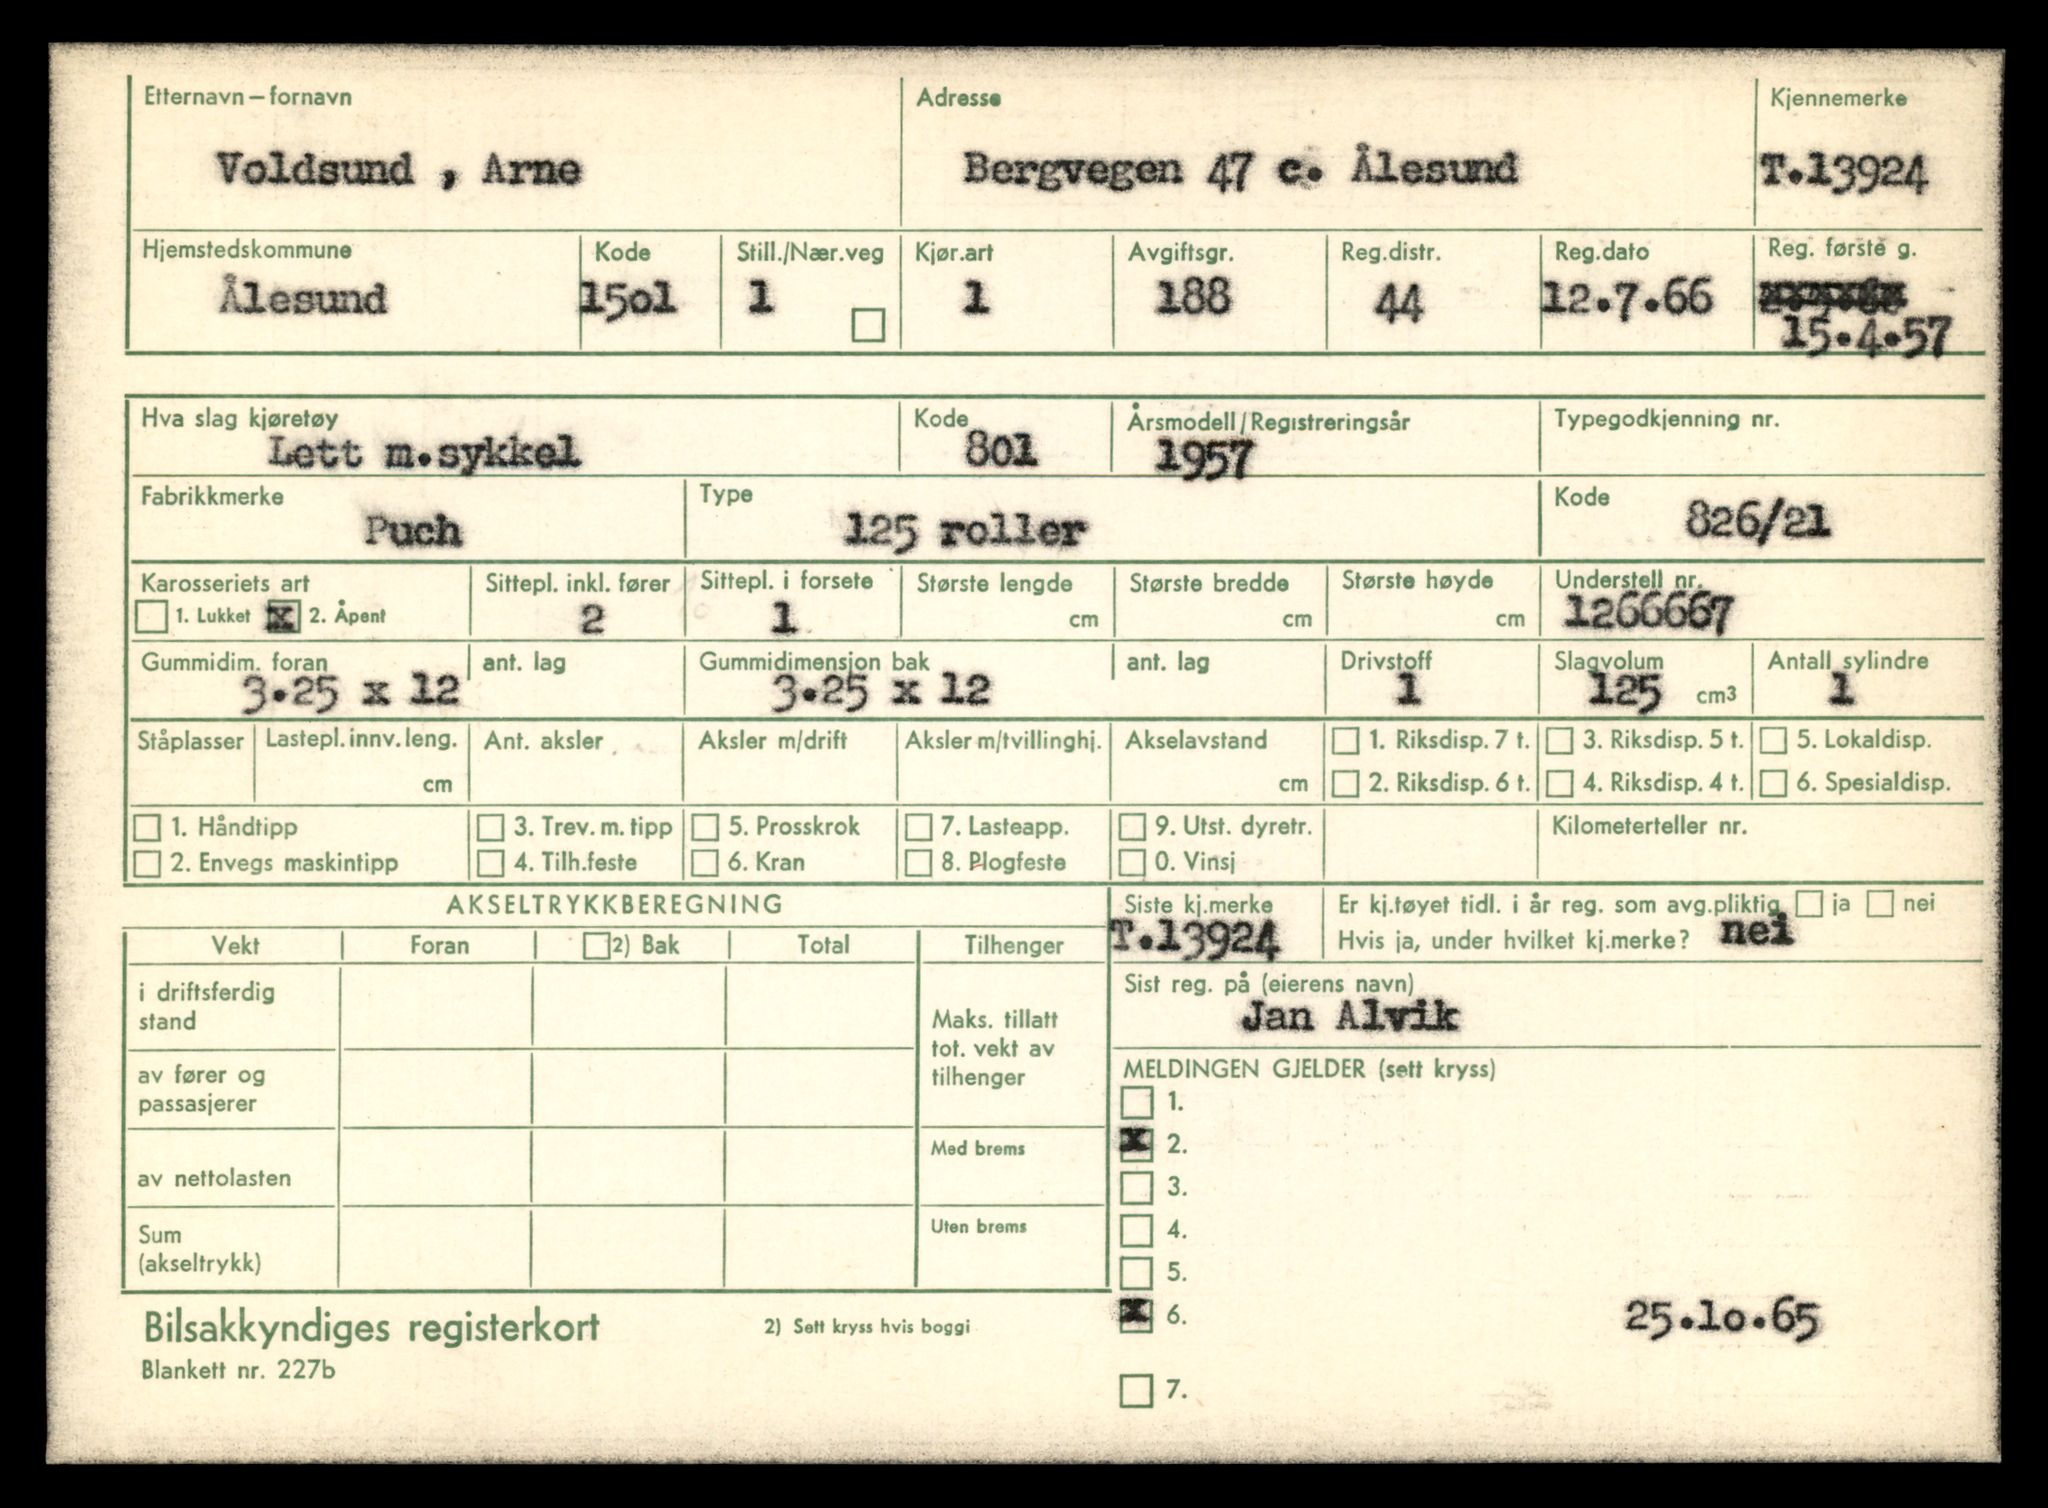 Etternavn – fornavn Adresse Kjennemerke
Voldsund , Arne Bergvegen 47 c. Ålesund T.13924
Hjemstedskommune Kode Still./Nær.veg Kjør.art Avgiftsgr. Reg.distr. Reg.dato Reg. første g.
Ålesund 15o1 1 1 188 44 12.7.66
15.4.57
Hva slag kjøretøy Kode Årsmodell/Registreringsår Typegodkjenning nr.
Lett m.sykkel 8o1 1957
Fabrikkmerke Type Kode
Puch 125 roller 826/21
Karosseriets art Sittepl. inkl. fører Sittepl. i forsete Største lengde Største bredde Største høyde Understell nr.
1. Lukket x 2. Åpent 2 1 cm cm cm 1266667
Gummidim. foran ant. lag Gummidimensjon bak ant. lag Drivstoff Slagvolum Antall sylindre
3.25 x 12 3.25 x 12 1 125 cm3 1
Ståplasser Lastepl. innv. leng. Ant. aksler Aksler m/drift Aksler m/tvillinghj. Akselavstand 1. Riksdisp. 7 t. 3. Riksdisp. 5 t. 5. Lokaldisp.
cm cm 2. Riksdisp. 6 t. 4. Riksdisp. 4 t. 6. Spesialdisp.
1. Håndtipp 3. Trev. m. tipp 5. Prosskrok 7. Lasteapp. 9. Utst. dyretr. Kilometerteller nr.
2. Envegs maskintipp 4. Tilh.feste 6. Kran 8. Plogfeste 0. Vinsj
AKSELTRYKKBEREGNING Siste kj.merke Er kj.tøyet tidl. i år reg. som avg.pliktig ja nei
T.13924 Hvis ja, under hvilket kj.merke? nei
Vekt Foran 2) Bak Total Tilhenger
Sist reg. på (eierens navn)
Jan Alvik
i driftsferdig
stand
Maks. tillatt
tot. vekt av
tilhenger
av fører og
passasjerer
MELDINGEN GJELDER (sett kryss)
1.
x 2.
3.
4.
5.
x 6. 25.1o.65
7.
av nettolasten Med brems
Sum
(akseltrykk)
Uten brems
Bilsakkyndiges registerkort 2) Sett kryss hvis boggi
Blankett nr. 227b